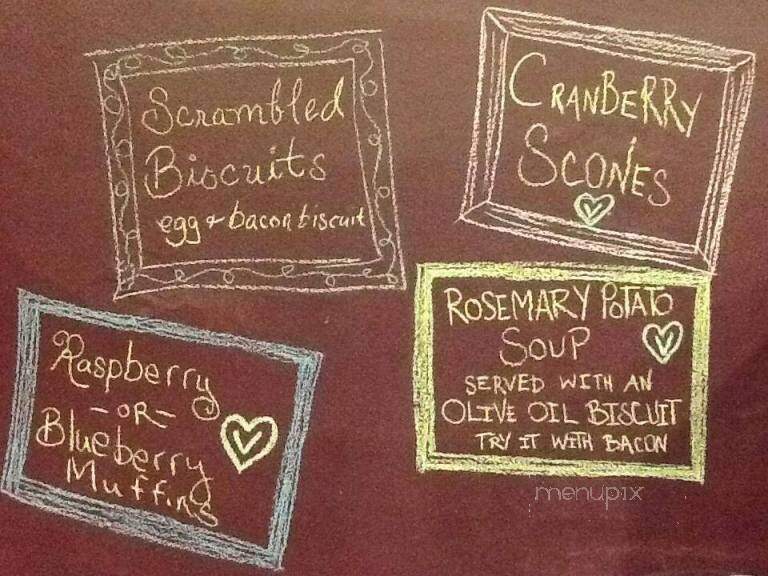 Scrambled
Biscuits
egg + bacon biscuit
CRANBERRY
SCONES
Raspberry
- OR -
Blueberry
Muffins
ROSEMARY POTATO
SOUP
SERVED WITH AN
OLIVE OIL BISCUIT
TRY IT WITH BACON
menupix